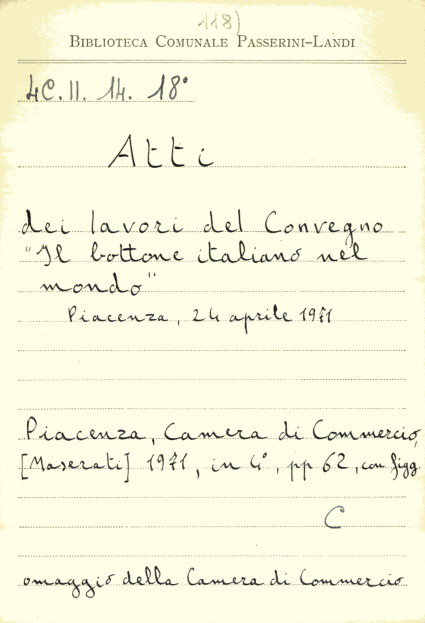 118)
BIBLIOTECA COMUNALE PASSERINI-LANDI
4C.II.14.18°
Atti
dei lavori del Convegno
"Il bottone italiano nel
mondo"
Piacenza, 24 aprile 1971
Piacenza, Camera di Commercio,
[Maserati] 1971, in 4°, pp 62, con figg.
C
omaggio della Camera di Commercio